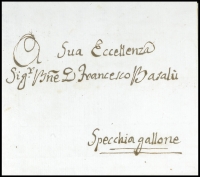 A Sua Eccellenza
Sig.r Bne D Francesco Basalù
Specchia gallone